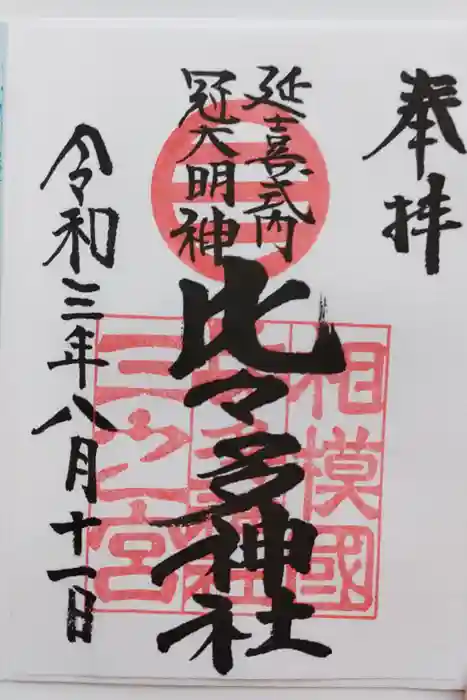 奉拝
延喜式内
冠大明神
比々多神社
令和三年八月十一日
相模國
三之宮